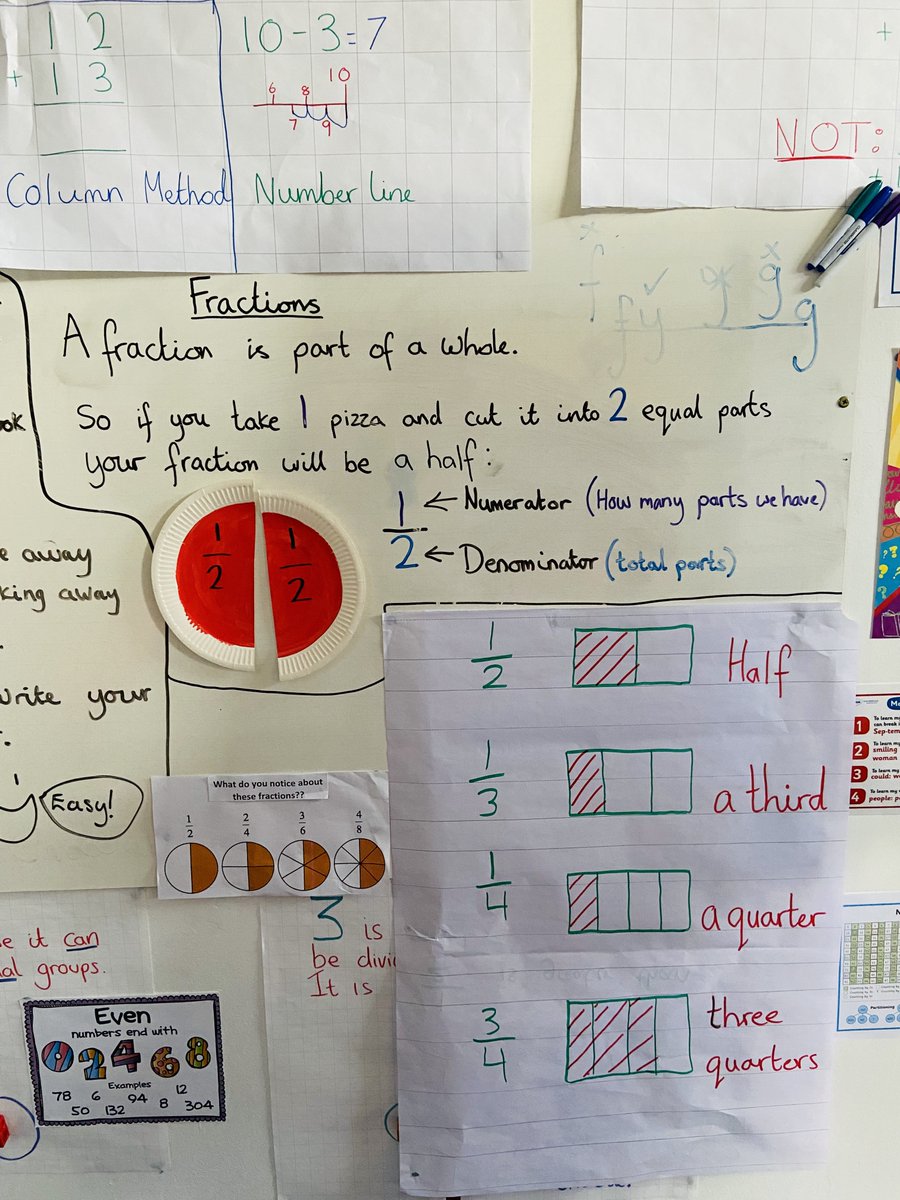 1 2
+ 1 3
Column Method
10 - 3 = 7
10
6 8
7 9
Number line
NOT:
Fractions
A fraction is part of a whole.
So if you take 1 pizza and cut it into 2 equal parts
your fraction will be a half:
1 ← Numerator (How many parts we have)
2 ← Denominator (total parts)
1 1
2 2
f fy g g g
away
king away
write your
Easy!
1/2 Half
1/3 a third
1/4 a quarter
3/4 three
quarters
What do you notice about
these fractions??
1/2 2/4 3/6 4/8
it can
groups.
3 is
be
It is
Even
numbers end with
0 2 4 6 8
Examples
78 6 94 12
50 132 8 304
1 To learn my
can break i
2 To learn my
smiling
woman
3 To learn my
could: w
4 To learn my
people: p
Partitioning